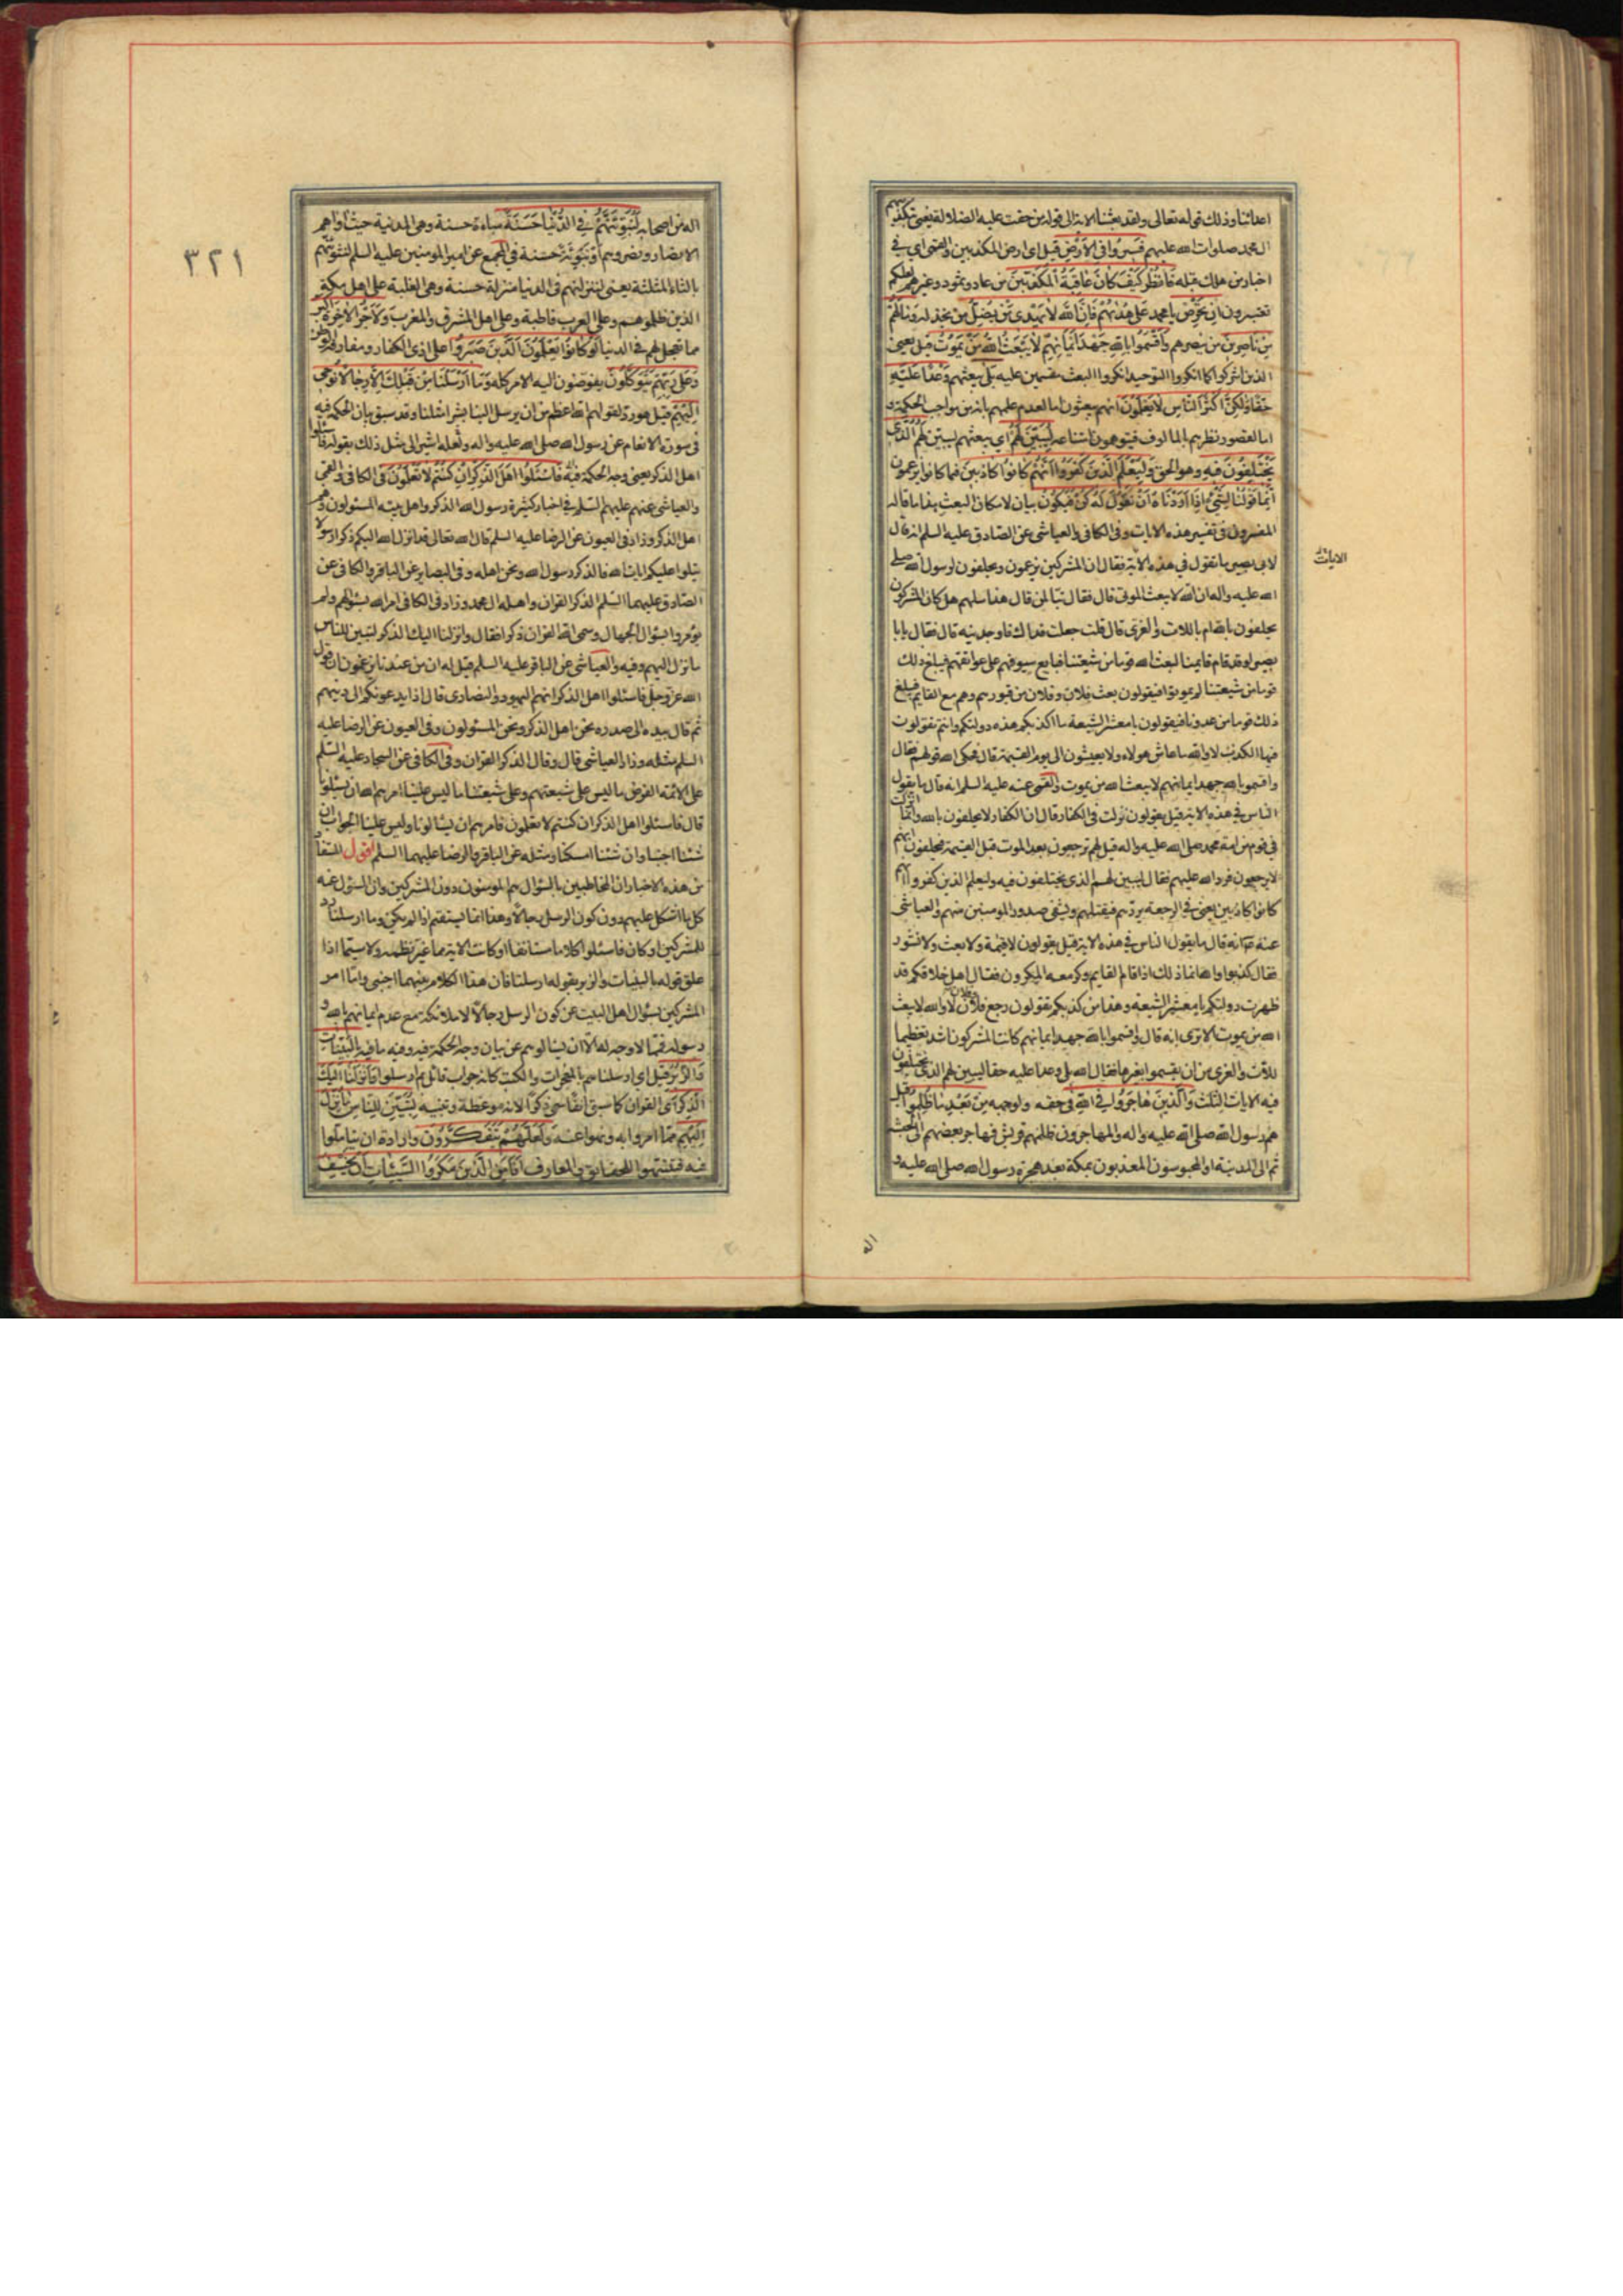 اعدائنا وذلك قوله تعالى ولقد بعثنا الاية الى قوله من حقت عليه الضلالة يعنى بتكذيبهم
ال محمد صلوات الله عليهم فَسِيرُوا فِى الاَرْضِ قيل اى ارض المكذبين والقمى اى فى
اخبار من هلك قبله فَانْظُرُوا كَيْفَ كَانَ عَاقِبَةُ الْمُكَذِّبِينَ من عاد وثمود وغيرهم لعلكم
تعتبرون اِنْ تَحْرِصْ يا محمد عَلَى هُدٰيهُمْ فَاِنَّ اللهَ لاَ يَهْدِى مَنْ يُضِلُّ من يخذله وَمَا لَهُمْ
مِنْ نَاصِرِينَ من ينصرهم وَاَقْسَمُوا بِاللهِ جَهْدَ اَيْمَانِهِمْ لاَ يَبْعَثُ اللهُ مَنْ يَمُوتُ قيل يعنى
الذين اشركوا كما انكروا التوحيد انكروا البعث مقسمين عليه بَلى يبعثهم وَعْدًا عَلَيْهِ
حَقًّا وَلكِنَّ اَكْثَرَ النَّاسِ لاَ يَعْلَمُونَ انهم يبعثون اما لعدم علمهم بانه من مواجب الحكمة و
اما لقصور نظرهم بالمالوف فيتوهمون امتناعه لِيُبَيِّنَ لَهُمُ اى يبعثهم ليبين لهم الَّذِى
يَخْتَلِفُونَ فِيهِ وهو الحق وَلِيَعْلَمَ الَّذِينَ كَفَرُوا اَنَّهُمْ كَانُوا كَاذِبِينَ فيما كانوا يزعمون
اِنَّمَا قَوْلُنَا لِشَىْءٍ اِذَا اَرَدْنَاهُ اَنْ نَقُولَ لَهُ كُنْ فَيَكُونُ بيان لامكان البعث هذا ما قاله
المفسرون فى تفسير هذه الايات وفى الكافى والعياشى عن الصادق عليه السلم انه قال
الايات
لابى بصير ما تقول فى هذه الاية فقال ان المشركين يزعمون ويحلفون لرسول الله صلى
الله عليه واله ان الله لا يبعث الموتى قال فقال تبا لمن قال هذا سلهم هل كان المشركون
يحلفون بالله ام باللات والعزى قال قلت جعلت فداك فاوجدنيه قال فقال يا با
بصير لو قد قام قايمنا لبعث الله قوما من شيعتنا قبايع سيوفهم على عواتقهم فيبلغ ذلك
قوما من شيعتنا لم يموتوا فيقولون بعث فلان وفلان من قبورهم وهم مع القايم فيبلغ
ذلك قوما من عدونا فيقولون يا معشر الشيعة ما اكذبكم هذه دولتكم وانتم تقولون
فيها الكذب لا والله ما عاش هولاء ولا يعيشون الى يوم القيمة قال فحكى الله قولهم فقال
واقسموا بالله جهد ايمانهم لا يبعث الله من يموت والقمى عنه عليه السلم انه قال ما يقول
الناس فى هذه الاية قيل يقولون نزلت فى الكفار قال ان الكفار لا يحلفون بالله وانما نزلت
فى قوم من امة محمد صلى الله عليه واله قيل لهم ترجعون بعد الموت قبل القيمة فيحلفون انهم
لا يرجعون فرد الله عليهم فقال ليبين لهم الذى يختلفون فيه وليعلم الذين كفروا انهم
كانوا كاذبين يعنى فى الرجعة يردهم فيقتلهم ويشفى صدور المومنين منهم والعياشى
عنه ع انه قال ما يقول الناس فى هذه الاية قيل يقولون لا قيمة ولا بعث ولا نشور
فقال كذبوا والله انما ذلك اذا قام القايم وكر معه المكرون فقال اهل خلافكم قد
ظهرت دولتكم يا معشر الشيعة وهذا من كذبكم تقولون رجع فلان وفلان لا والله لا يبعث
الله من يموت الا ترى انه قال واقسموا بالله جهد ايمانهم كانت المشركون اشد تعظيما
للات والعزى من ان يقسموا بغيرها فقال الله بلى وعدا عليه حقا ليبين لهم الذى يختلفون
فيه الايات الثلث وَالَّذِينَ هَاجَرُوا فِى اللهِ فى حقه ولوجهه مِنْ بَعْدِ مَا ظُلِمُوا قيل
هم رسول الله صلى الله عليه واله والمهاجرون ظلمهم قريش فهاجر بعضهم الى الحبشة
ثم الى المدينة او المحبوسون المعذبون بمكة بعد هجرة رسول الله صلى الله عليه و
اله
٣٢١
اله من اصحابه لَنُبَوِّئَنَّهُمْ فِى الدُّنْيَا حَسَنَةً مباءة حسنة وهى المدينة حيث اواهم
الانصار ونصروهم او تبوئة حسنة فى المجمع عن امير المومنين عليه السلم لنثوينهم
بالثاء المثلثة يعنى لننزلنهم فى الدنيا منزلة حسنة وهى الغلبة على اهل مكة
الذين ظلموهم وعلى العرب قاطبة وعلى اهل المشرق والمغرب وَلاَجْرُ الاٰخِرَةِ اَكْبَرُ
مما تعجل لهم فى الدنيا لَوْ كَانُوا يَعْلَمُونَ اَلَّذِينَ صَبَرُوا على اذى الكفار ومفارقة الوطن
وَعَلَى رَبِّهِمْ يَتَوَكَّلُونَ يفوضون اليه الامر كله وَمَا اَرْسَلْنَا مِنْ قَبْلِكَ اِلاَّ رِجَالاً نُوحِى
اِلَيْهِمْ قيل هو رد لقولهم الله اعظم من ان يرسل الينا بشرا مثلنا وقد سبق بيان الحكمة فيه
فى سورة الانعام عن رسول الله صلى الله عليه واله ولعله اشير الى مثل ذلك بقوله فاسئلوا
اهل الذكر يعنى وجه الحكمة فيه فَاسْئَلُوا اَهْلَ الذِّكْرِ اِنْ كُنْتُمْ لاَ تَعْلَمُونَ فى الكافى والقمى
والعياشى عنهم عليهم السلم فى اخبار كثيرة رسول الله الذكر واهل بيته المسئولون وهم
اهل الذكر وزاد فى العيون عن الرضا عليه السلم قال الله تعالى قد انزل الله اليكم ذكرا رسولا
يتلوا عليكم ايات الله فالذكر رسول الله ونحن اهله وفى البصاير عن الباقر والكافى عن
الصادق عليهما السلم الذكر القران واهله ال محمد وزاد فى الكافى امر الله بسؤالهم ولم
يؤمروا بسؤال الجهال وسمى الله القران ذكرا فقال وانزلنا اليك الذكر لتبين للناس
ما نزل اليهم وفيه والعياشى عن الباقر عليه السلم قيل له ان من عندنا يزعمون ان قول
الله عز وجل فاسئلوا اهل الذكر انهم اليهود والنصارى قال اذا يدعونكم الى دينهم
ثم قال بيده الى صدره نحن اهل الذكر ونحن المسئولون وفى العيون عن الرضا عليه
السلم مثله وزاد العياشى قال وقال الذكر القران وفى الكافى عن السجاد عليه السلم
على الائمة الفرض ما ليس على شيعتهم وعلى شيعتنا ما ليس علينا امرهم الله ان يسئلونا
قال فاسئلوا اهل الذكر ان كنتم لا تعلمون فامرهم ان يسالونا وليس علينا الجواب ان
شئنا اجبنا وان شئنا امسكنا ومثله عن الباقر والرضا عليهما السلم اقول المستفاد
من هذه الاخبار ان المخاطبين بالسؤال هم المومنون دون المشركين وان المسئول عنه
كل ما اشكل عليهم دون كون الرسل رجالا وهذا انما يستقيم اذا لم يكن وما ارسلنا رد
للمشركين او كان فاسئلوا كلاما مستانفا او كانت الاية مما غير نظمه ولا سيما اذا
علق قوله بالبينات والزبر بقوله ارسلنا فان هذا الكلام بينهما اجنبى واما امر
المشركين بسؤال اهل البيت عن كون الرسل رجالا لا ملائكة مع عدم ايمانهم بالله و
رسوله فمما لا وجه له الا ان يسالوهم عن بيان وجه الحكمة فيه وفيه ما فيه بِالْبَيِّنَاتِ
وَالزُّبُرِ قيل اى ارسلناهم بالمعجزات والكتب كانه جواب قائل بم ارسلوا وَاَنْزَلْنَا اِلَيْكَ
الذِّكْرَ اى القران كما سبق انفا سمى ذكرا لانه موعظة وتنبيه لِتُبَيِّنَ لِلنَّاسِ مَا نُزِّلَ
اِلَيْهِمْ مما امروا به ونهوا عنه وَلَعَلَّهُمْ يَتَفَكَّرُونَ وارادة ان يتاملوا
فيه فيتنبهوا للحقائق والمعارف اَفَاَمِنَ الَّذِينَ مَكَرُوا السَّيِّئَاتِ اَنْ يَخْسِفَ